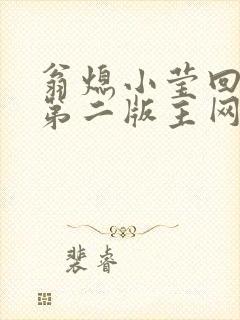 翁熄小莹回
第二版主网
裴睿